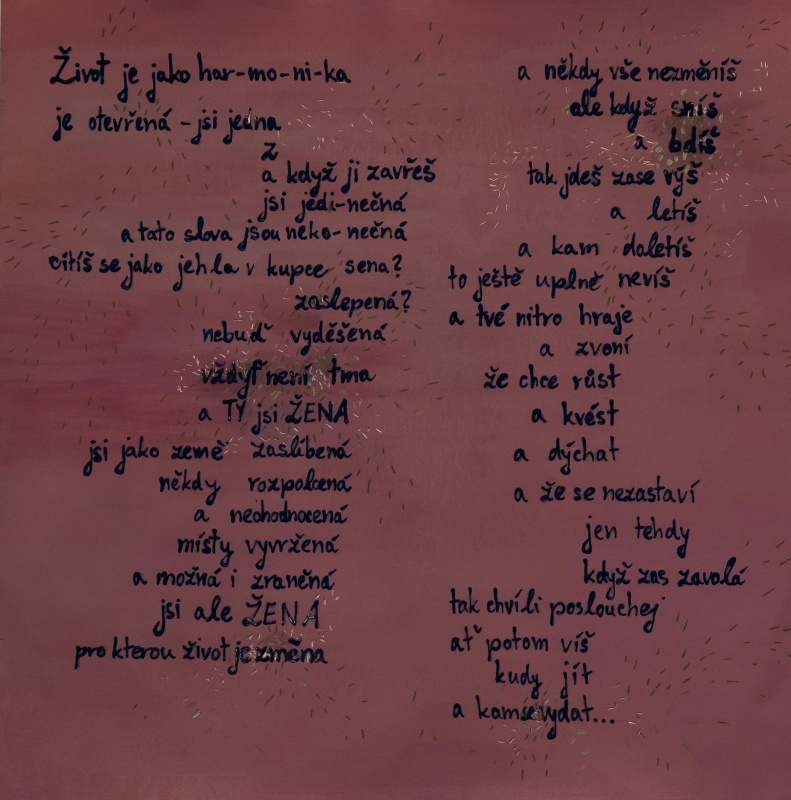 Život je jako har-mo-ni-ka
je otevřená - jsi jedna
z
a když ji zavřeš
jsi jedi-nečná
a tato slova jsou neko-nečná
cítíš se jako jehla v kupce sena?
zaslepená?
nebuď vyděšená
vždyť není tma
a TY jsi ŽENA
jsi jako země zaslíbená
někdy rozpolcená
a neohodnocená
místy vyvržená
a možná i zraněná
jsi ale ŽENA
pro kterou život je změna
a někdy vše nezměníš
ale když sníš
a bdíš
tak jdeš zase výš
a letíš
a kam doletíš
to ještě uplně nevíš
a tvé nitro hraje
a zvoní
že chce růst
a kvést
a dýchat
a že se nezastaví
jen tehdy
když zas zavolá
tak chvíli poslouchej
ať potom víš
kudy jít
a kam se vydat...